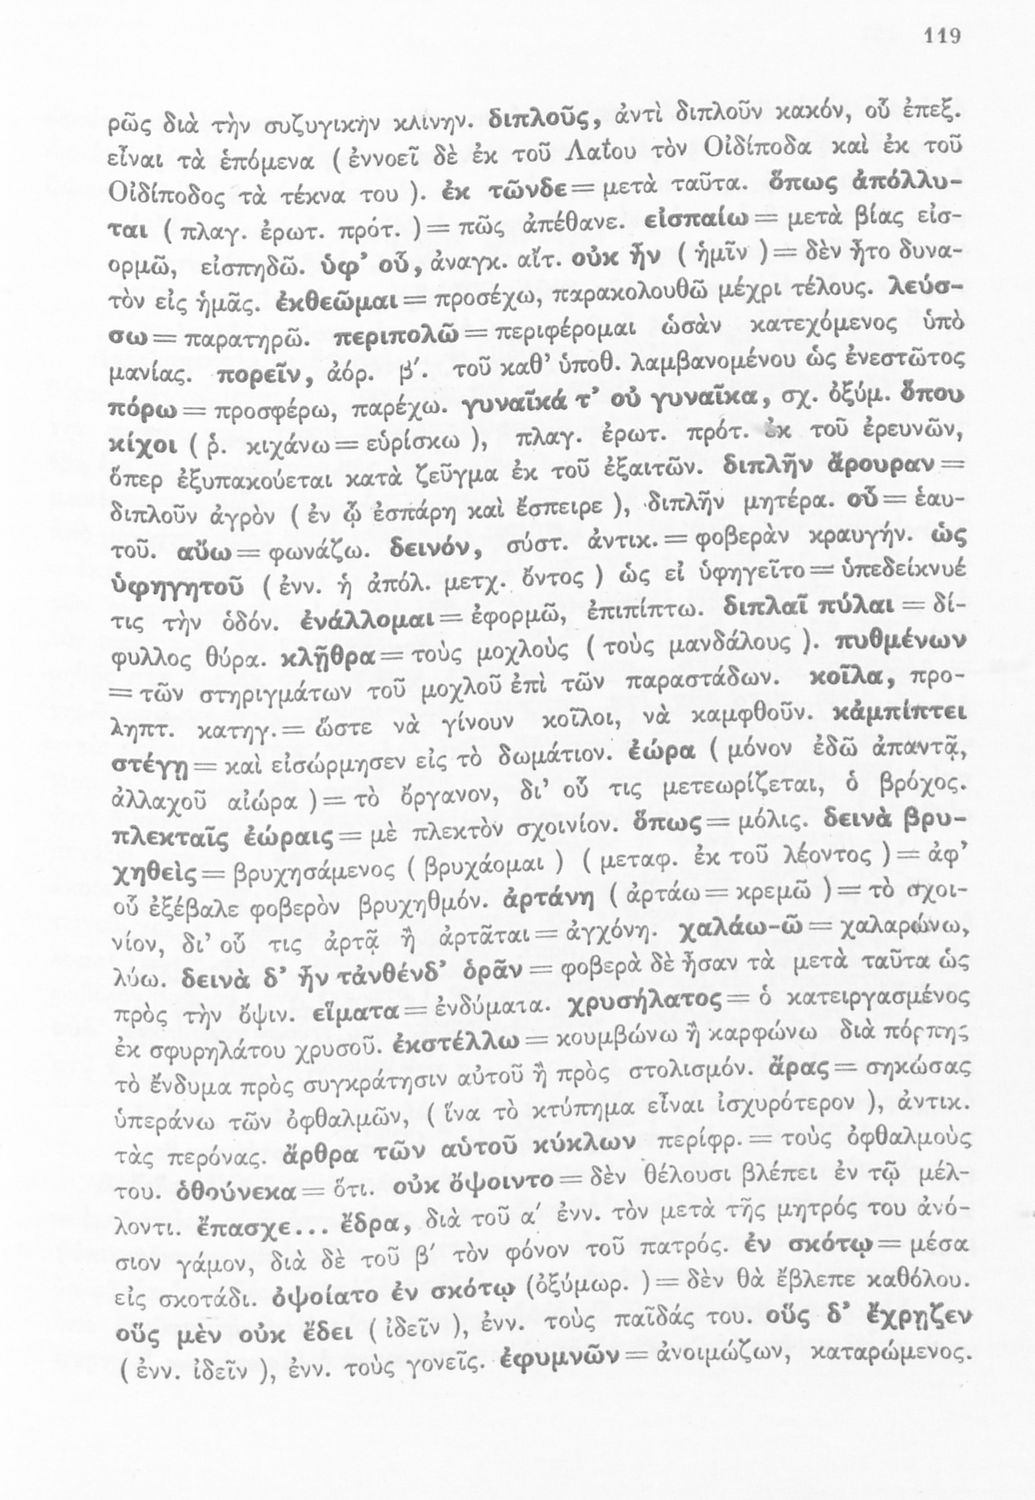 119
ρῶς διὰ τὴν συζυγικὴν κλίνην. διπλοῦς, ἀντὶ διπλοῦν κακόν, οὗ ἐπεξ.
εἶναι τὰ ἑπόμενα ( ἐννοεῖ δὲ ἐκ τοῦ Λαΐου τὸν Οἰδίποδα καὶ ἐκ τοῦ
Οἰδίποδος τὰ τέκνα του ). ἐκ τῶνδε = μετὰ ταῦτα. ὅπως ἀπόλλυ-
ται ( πλαγ. ἐρωτ. πρότ. ) = πῶς ἀπέθανε. εἰσπαίω = μετὰ βίας εἰσ-
ορμῶ, εἰσπηδῶ. ὑφ’ οὗ, ἀναγκ. αἴτ. οὐκ ἦν ( ἡμῖν ) = δὲν ἦτο δυνα-
τὸν εἰς ἡμᾶς. ἐκθεῶμαι = προσέχω, παρακολουθῶ μέχρι τέλους. λεύσ-
σω = παρατηρῶ. περιπολῶ = περιφέρομαι ὡσὰν κατεχόμενος ὑπὸ
μανίας. πορεῖν, ἀόρ. β΄. τοῦ καθ’ ὑποθ. λαμβανομένου ὡς ἐνεστῶτος
πόρω = προσφέρω, παρέχω. γυναῖκά τ’ οὐ γυναῖκα, σχ. ὀξύμ. ὅπου
κίχοι ( ῥ. κιχάνω = εὑρίσκω ), πλαγ. ἐρωτ. πρότ. ἐκ τοῦ ἐρευνῶν,
ὅπερ ἐξυπακούεται κατὰ ζεῦγμα ἐκ τοῦ ἐξαιτῶν. διπλῆν ἄρουραν =
διπλοῦν ἀγρὸν ( ἐν ᾧ ἐσπάρη καὶ ἔσπειρε ), διπλῆν μητέρα. οὗ = ἑαυ-
τοῦ. αὔω = φωνάζω. δεινόν, σύστ. ἀντικ. = φοβερὰν κραυγήν. ὡς
ὑφηγητοῦ ( ἐνν. ἡ ἀπόλ. μετχ. ὄντος ) ὡς εἰ ὑφηγεῖτο = ὑπεδείκνυέ
τις τὴν ὁδόν. ἐνάλλομαι = ἐφορμῶ, ἐπιπίπτω. διπλαῖ πύλαι = δί-
φυλλος θύρα. κλῇθρα = τοὺς μοχλοὺς ( τοὺς μανδάλους ). πυθμένων
= τῶν στηριγμάτων τοῦ μοχλοῦ ἐπὶ τῶν παραστάδων. κοῖλα, προ-
ληπτ. κατηγ. = ὥστε νὰ γίνουν κοῖλοι, νὰ καμφθοῦν. κἀμπίπτει
στέγῃ = καὶ εἰσώρμησεν εἰς τὸ δωμάτιον. ἐώρα ( μόνον ἐδῶ ἀπαντᾷ,
ἀλλαχοῦ αἰώρα ) = τὸ ὄργανον, δι’ οὗ τις μετεωρίζεται, ὁ βρόχος.
πλεκταῖς ἐώραις = μὲ πλεκτὸν σχοινίον. ὅπως = μόλις. δεινὰ βρυ-
χηθεὶς = βρυχησάμενος ( βρυχάομαι ) ( μεταφ. ἐκ τοῦ λέοντος ) = ἀφ’
οὗ ἐξέβαλε φοβερὸν βρυχηθμόν. ἀρτάνη ( ἀρτάω = κρεμῶ ) = τὸ σχοι-
νίον, δι’ οὗ τις ἀρτᾷ ἢ ἀρτᾶται = ἀγχόνη. χαλάω-ῶ = χαλαρώνω,
λύω. δεινὰ δ’ ἦν τἀνθένδ’ ὁρᾶν = φοβερὰ δὲ ἦσαν τὰ μετὰ ταῦτα ὡς
πρὸς τὴν ὄψιν. εἵματα = ἐνδύματα. χρυσήλατος = ὁ κατειργασμένος
ἐκ σφυρηλάτου χρυσοῦ. ἐκστέλλω = κουμβώνω ἢ καρφώνω διὰ πόρπης
τὸ ἔνδυμα πρὸς συγκράτησιν αὐτοῦ ἢ πρὸς στολισμόν. ἄρας = σηκώσας
ὑπεράνω τῶν ὀφθαλμῶν, ( ἵνα τὸ κτύπημα εἶναι ἰσχυρότερον ), ἀντικ.
τὰς περόνας. ἄρθρα τῶν αὑτοῦ κύκλων περίφρ. = τοὺς ὀφθαλμοὺς
του. ὁθούνεκα = ὅτι. οὐκ ὄψοιντο = δὲν θέλουσι βλέπει ἐν τῷ μέλ-
λοντι. ἔπασχε... ἔδρα, διὰ τοῦ α΄ ἐνν. τὸν μετὰ τῆς μητρός του ἀνό-
σιον γάμον, διὰ δὲ τοῦ β΄ τὸν φόνον τοῦ πατρός. ἐν σκότῳ = μέσα
εἰς σκοτάδι. ὀψοίατο ἐν σκότῳ (ὀξύμωρ. ) = δὲν θὰ ἔβλεπε καθόλου.
οὓς μὲν οὐκ ἔδει ( ἰδεῖν ), ἐνν. τοὺς παῖδάς του. οὓς δ’ ἔχρῃζεν
( ἐνν. ἰδεῖν ), ἐνν. τοὺς γονεῖς. ἐφυμνῶν = ἀνοιμώζων, καταρώμενος.